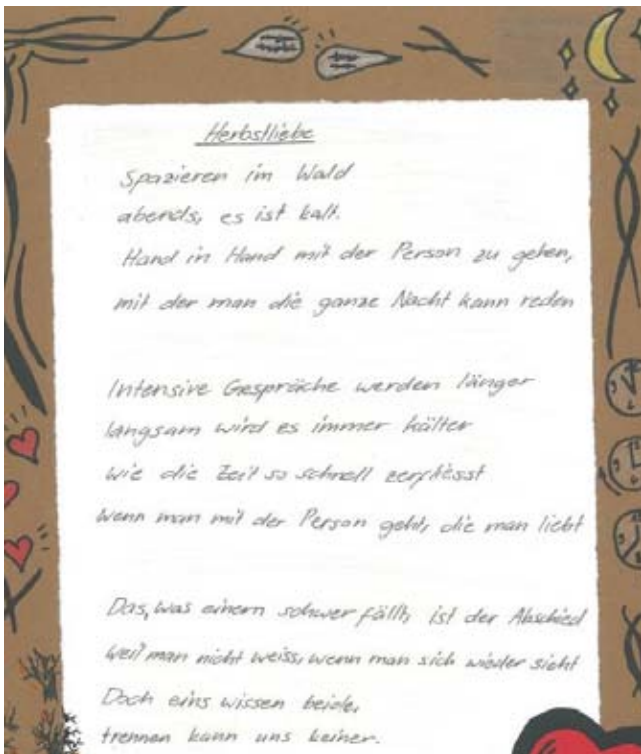 Herbstliebe
Spazieren im Wald
abends, es ist kalt.
Hand in Hand mit der Person zu gehen,
mit der man die ganze Nacht kann reden
Intensive Gespräche werden länger
langsam wird es immer kälter
wie die Zeit so schnell zerfliesst
wenn man mit der Person geht, die man liebt
Das, was einem schwer fällt, ist der Abschied
weil man nicht weiss, wenn man sich wieder sieht
Doch eins wissen beide,
trennen kann uns keiner.